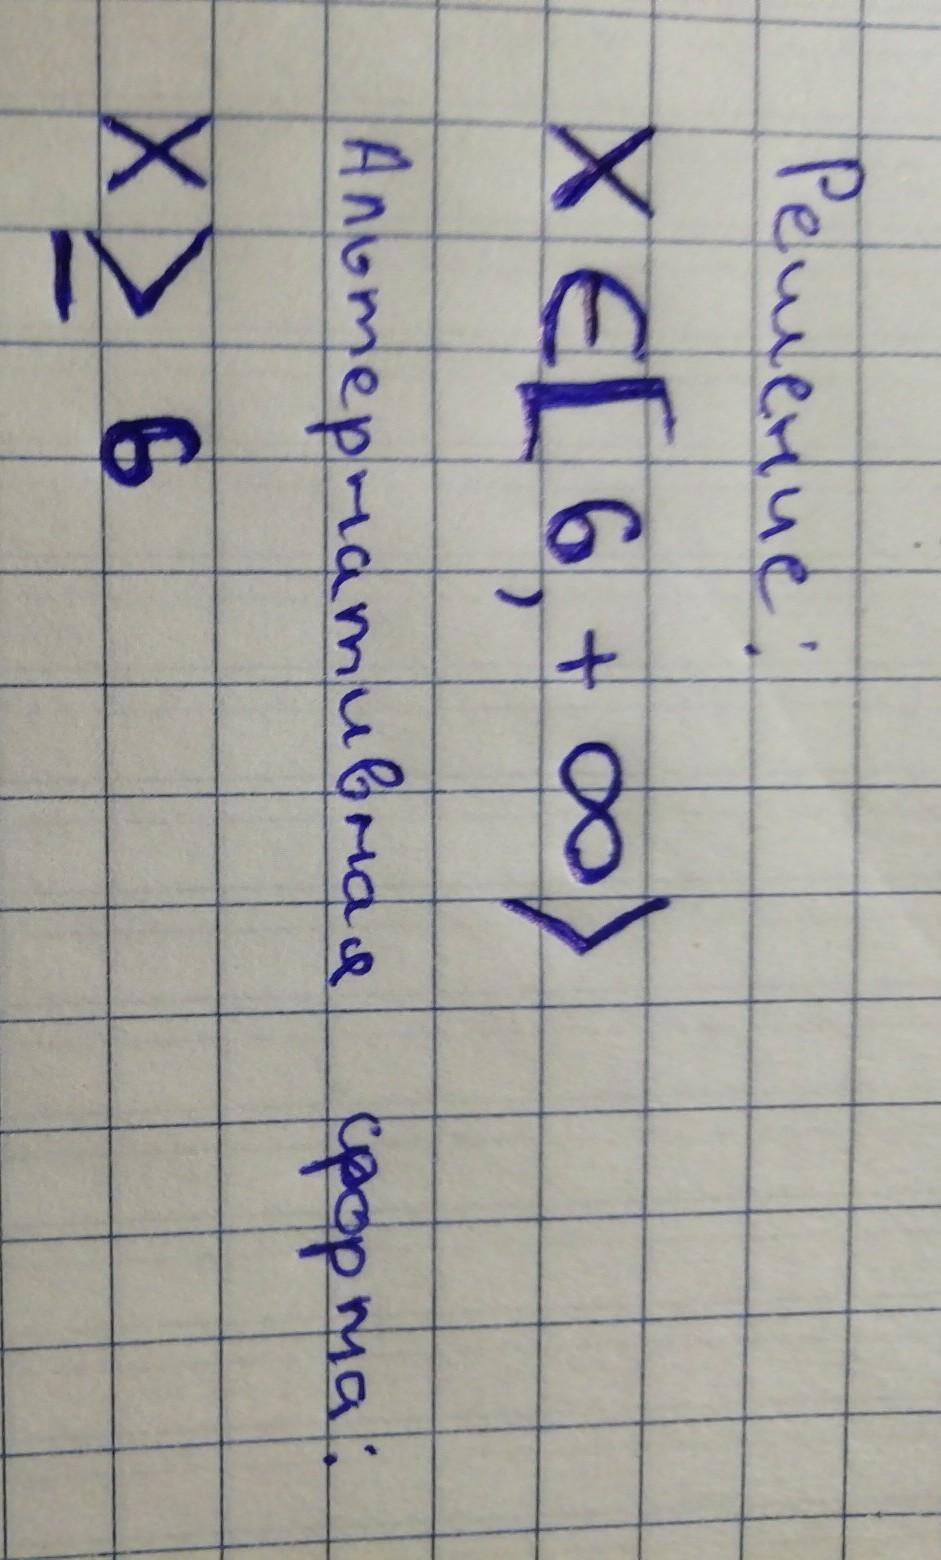 Решение:
x ∈ [6, +∞>
Альтернативная форма:
x ≥ 6